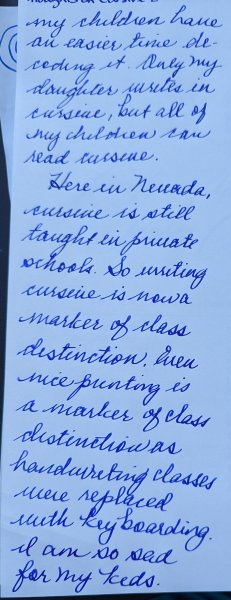 my children have
an easier time de-
coding it. Only my
daughter writes in
cursive, but all of
my children can
read cursive.
Here in Nevada,
cursive is still
taught in private
schools. So writing
cursive is now a
marker of class
distinction. Even
nice printing is
a marker of class
distinction as
handwriting classes
were replaced
with keyboarding.
I am so sad
for my kids.